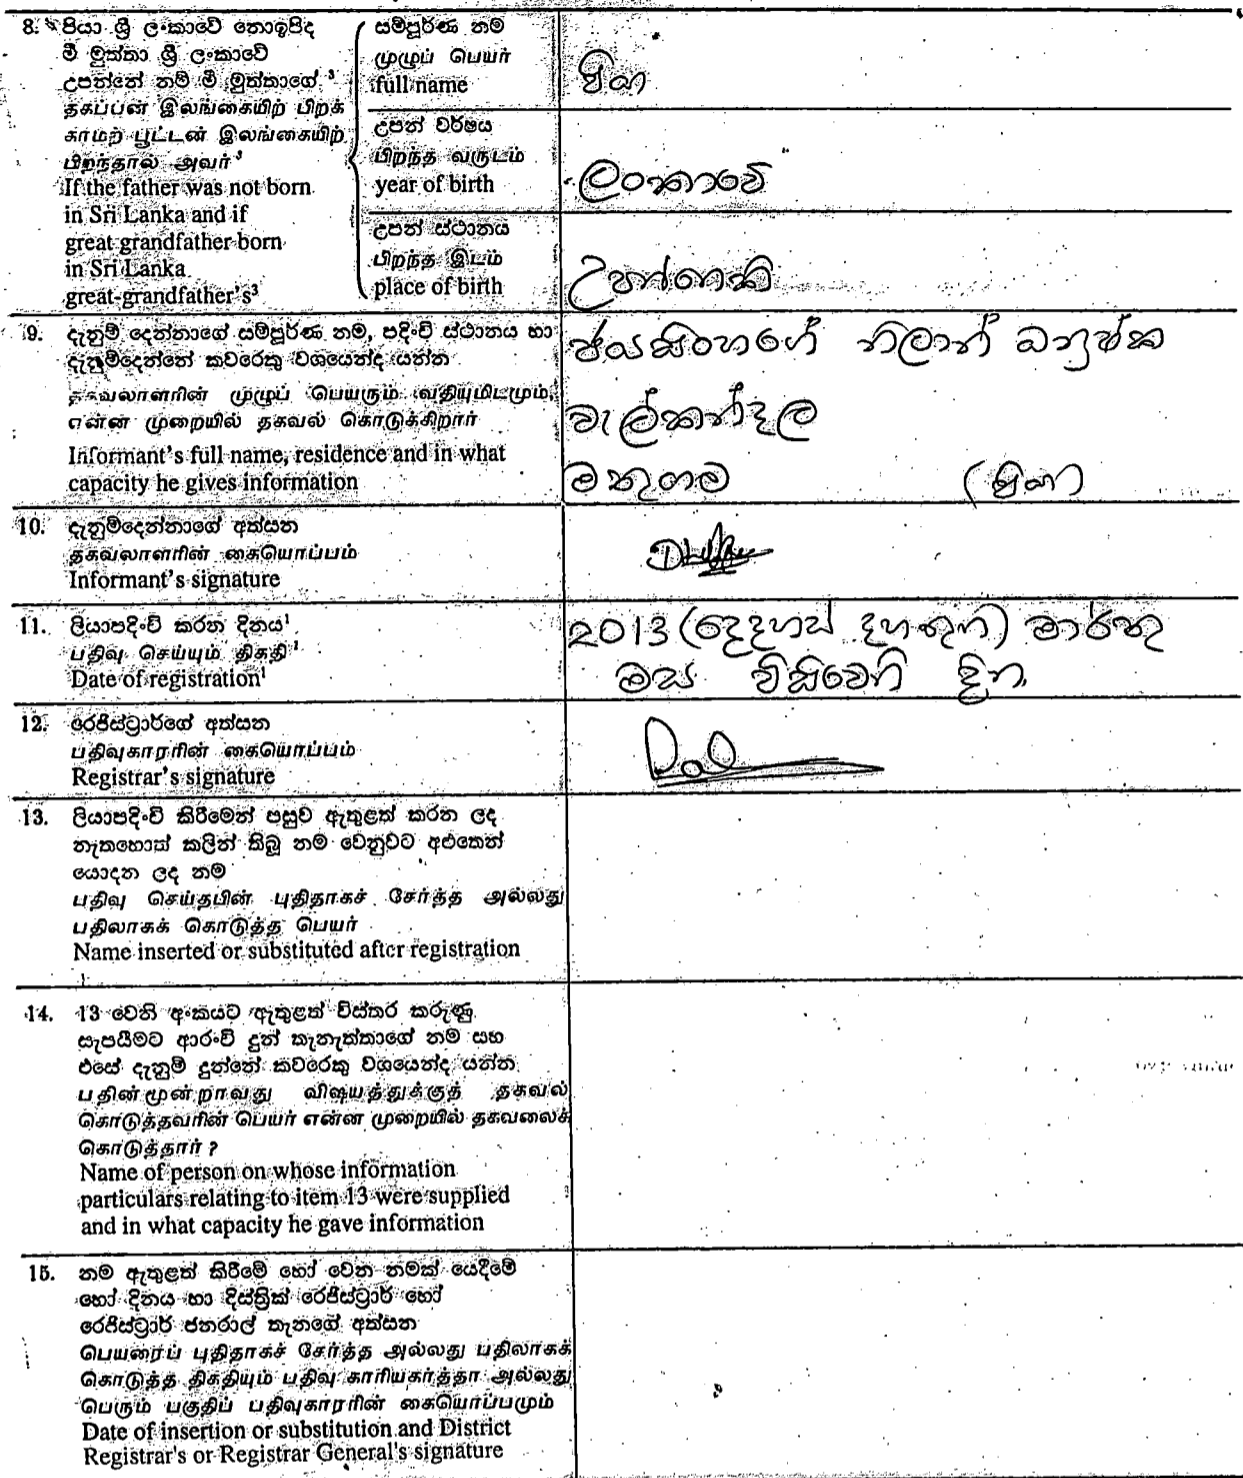 8. පියා ශ්‍රී ලංකාවේ නොඉපිද
මී මුත්තා ශ්‍රී ලංකාවේ
උපන්නේ නම් මී මුත්තාගේ ³
தகப்பன் இலங்கையிற் பிறக்
காமற் பூட்டன் இலங்கையிற்
பிறந்தால் அவர் ³
If the father was not born
in Sri Lanka and if
great grandfather born
in Sri Lanka
great-grandfather's³
සම්පූර්ණ නම
முழுப் பெயர்
full name
පියා
උපන් වර්ෂය
பிறந்த வருடம்
year of birth
ලංකාවේ
උපන් ස්ථානය
பிறந்த இடம்
place of birth
උපන්නෙකි
9. දැනුම් දෙන්නාගේ සම්පූර්ණ නම, පදිංචි ස්ථානය හා
දැනුම්දෙන්නේ කවරෙකු වශයෙන්ද යන්න
தகவலாளரின் முழுப் பெயரும் வதியுமிடமும்,
என்ன முறையில் தகவல் கொடுக்கிறார்
Informant's full name, residence and in what
capacity he gives information
ජයසිංහගේ නිලාන් ධනුෂ්ක
වැල්කන්දල
මතුගම (පියා)
10. දැනුම්දෙන්නාගේ අත්සන
தகவலாளரின் கையொப்பம்
Informant's signature
11. ලියාපදිංචි කරන දිනය¹
பதிவு செய்யும் திகதி ¹
Date of registration¹
2013 (දෙදහස් දහතුන) මාර්තු
මස විසිවෙනි දින
12. රෙජිස්ට්‍රාර්ගේ අත්සන
பதிவுகாரரின் கையொப்பம்
Registrar's signature
13. ලියාපදිංචි කිරීමෙන් පසුව ඇතුළත් කරන ලද
නැතහොත් කලින් තිබූ නම වෙනුවට අළුතෙන්
යොදන ලද නම
பதிவு செய்தபின் புதிதாகச் சேர்த்த அல்லது
பதிலாகக் கொடுத்த பெயர்
Name inserted or substituted after registration
14. 13 වෙනි අංකයට ඇතුළත් විස්තර කරුණු
සැපයීමට ආරංචි දුන් තැනැත්තාගේ නම සහ
එසේ දැනුම් දුන්නේ කවරෙකු වශයෙන්ද යන්න
பதின்மூன்றாவது விஷயத்துக்குத் தகவல்
கொடுத்தவரின் பெயர் என்ன முறையில் தகவலைக்
கொடுத்தார் ?
Name of person on whose information
particulars relating to item 13 were supplied
and in what capacity he gave information
15. නම ඇතුළත් කිරීමේ හෝ වෙන නමක් යෙදීමේ
හෝ දිනය හා දිස්ත්‍රික් රෙජිස්ට්‍රාර් හෝ
රෙජිස්ට්‍රාර් ජනරාල් තැනගේ අත්සන
பெயரைப் புதிதாகச் சேர்த்த அல்லது பதிலாகக்
கொடுத்த திகதியும் பதிவு காரியகர்த்தா அல்லது
பெரும் பகுதிப் பதிவுகாரரின் கையொப்பமும்
Date of insertion or substitution and District
Registrar's or Registrar General's signature